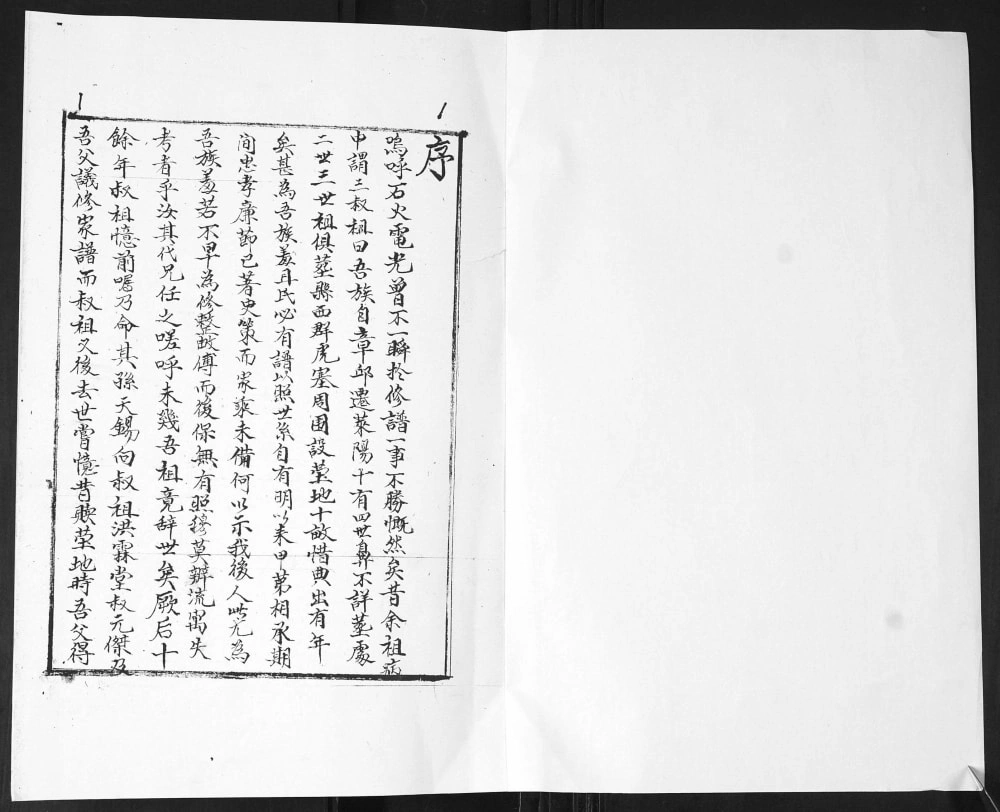 1
序
嗚呼石火電光曾不一瞬於修譜一事不勝慨然矣昔余祖病
中謂三叔祖曰吾族自章邱遷萊陽十有四世鼻不詳塋處
二世三世祖俱塋縣西群虎塞周圍設塋地十畝惜典出有年
矣甚為吾族羞且氏必有譜以照世系自有明以来甲第相承期
间忠孝廉節已著史策而家乘未備何以示我後人此尤為
吾族羞若不早為修整故傅而後保無有照穆莫辨流寓失
考者乎汝其代兄任之嗟呼未幾吾祖竟辞世矣厥后十
餘年叔祖憶前囑乃命其孫天錫向叔祖洪霖堂叔元傑及
吾父議修家譜而叔祖又後去世嘗憶昔贖塋地時吾父得
1